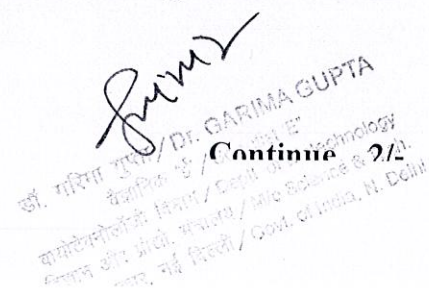 डॉ. गरिमा गुप्ता / Dr. GARIMA GUPTA
वैज्ञानिक "ई" / "E"
Continue 2/-
बायोटेक्नोलॉजी विभाग / Deptt. of Biotechnology
विज्ञान और प्रौद्यो. मंत्रालय / M/o Science &
नई दिल्ली / Govt. of India, N. Delhi